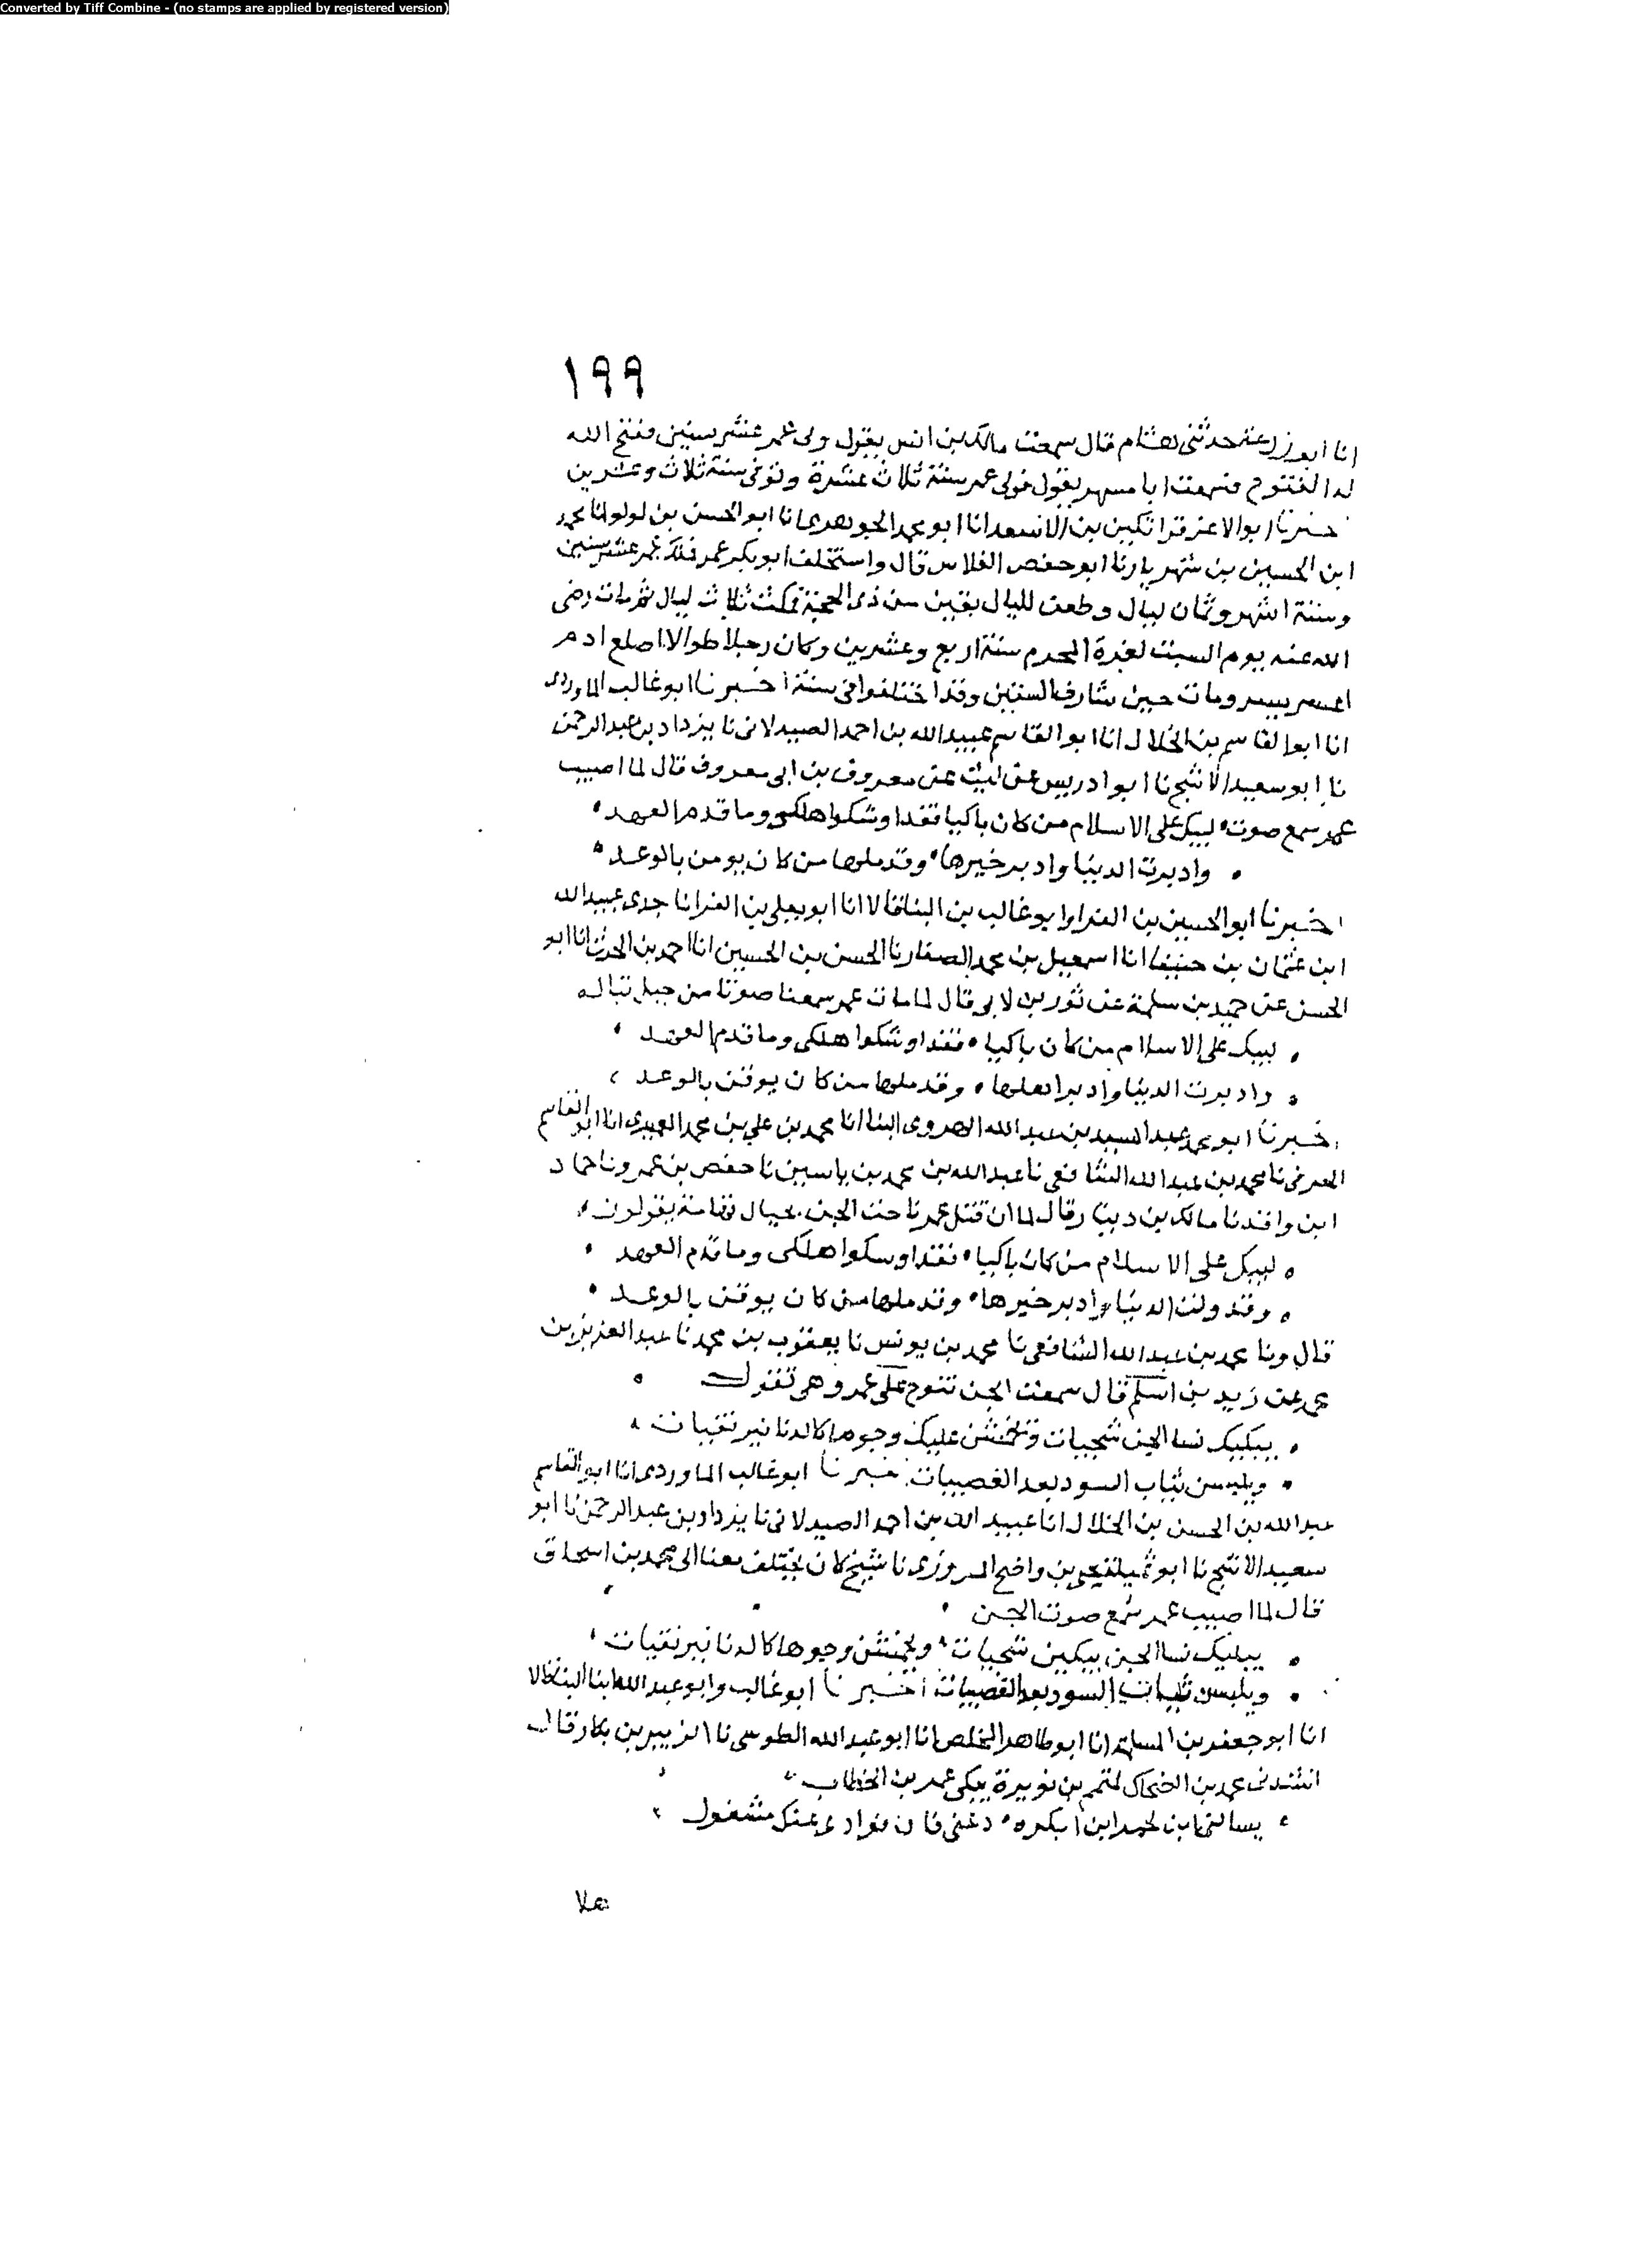 Converted by Tiff Combine - (no stamps are applied by registered version)
١٩٩
انا ابو زرعة حدثنى هشام قال سمعت مالك بن انس يقول ولى عمر عشر سنين ففتح الله
له الفتوح فسمعت ابا مسهر يقول فولى عمر سنة ثلاث عشرة وتوفى سنة ثلاث وعشرين
اخبرنا ابو الاعز قراتكين بن الاسعد انا ابو محمد الجوهرى انا ابو الحسن بن لولو انا محمد
ابن الحسين بن شهريار نا ابو حفص الفلاس قال واستخلف ابو بكر عمر فملك عمر عشر سنين
وستة اشهر وثمان ليال وطعن لليال بقين من ذى الحجة فمكث ثلاث ليال ثم مات رضى
الله عنه يوم السبت لغرة المحرم سنة اربع وعشرين وكان رجلا طوالا اصلع ادم
اعسر يسر ومات حين شارف الستين وقد اختلفوا فى سنة اخبرنا ابو غالب الماوردى
انا ابو القاسم بن الخلال انا ابو القاسم عبيد الله بن احمد الصيدلانى نا يزداد بن عبد الرحمن
نا ابو سعيد الاشج نا ابو ادريس عن ليث عن معروف بن ابى معروف قال لما اصيب
عمر سمع صوت ليبك على الاسلام من كان باكيا فقد اوشكوا هلكى وما قدم العهد
وادبرت الدنيا وادبر خيرها وقد ملها من كان يومن بالوعد
اخبرنا ابو الحسين بن الفرا وابو غالب بن البنا قالا انا ابو يعلى بن الفرا نا جدى عبيد الله
ابن عثمان بن حنيفا انا اسمعيل بن محمد الصفار نا الحسن بن الحسين انا احمد بن الحرث انا ابو
الحسن عن حميد بن سلمة عن ثور بن لاى قال لما مات عمر سمعنا صوتا من جبل تباله
ليبك على الاسلام من كان باكيا فقد اوشكوا هلكى وما قدم العهد
وادبرت الدنيا وادبر اهلها وقد ملها من كان يوقن بالوعد
اخبرنا ابو محمد عبد السيد بن عبد الله الهروى البنا انا محمد بن على بن محمد العميرى انا ابو القاسم
العرفى نا محمد بن عبد الله الشافعى نا عبد الله بن محمد بن ياسين نا حفص بن عمرو نا حماد
ابن واقد نا مالك بن دينار قال لما ان قتل عمر ناحت الجن بجبال تهامة يقولون
ليبك على الاسلام من كان باكيا فقد اوسكوا هلكى وما قدم العهد
وقد ولت الدنيا وادبر خيرها وقد ملها من كان يوقن بالوعد
قال ونا محمد بن عبد الله الشافعى نا محمد بن يونس نا يعقوب بن محمد نا عبد العزيز بن
عن زيد بن اسلم قال سمعت الجن تنوح على عمر وهى تقول
يبكيك نسا الجن شجيات وتخمشن عليك وجوها كالدنانير نقيات
ويلبسن ثياب السود بعد القصبيات اخبرنا ابو غالب الماوردى انا ابو القاسم
عبد الله بن الحسن بن الخلال انا عبيد الله بن احمد الصيدلانى نا يزداد بن عبد الرحمن نا ابو
سعيد الاشج نا ابو ثميلة يحيى بن واضح المروزى نا شيخ كان يختلف معنا الى محمد بن اسحاق
قال لما اصيب عمر سمع صوت الجن
يبكيك نسا الجن يبكين شجيات ويخمشن وجوها كالدنانير نقيات
ويلبسن ثياب السود بعد القصبيات اخبرنا ابو غالب وابو عبد الله ابنا البنا قالا
انا ابو جعفر بن المسلمة انا ابو طاهر المخلص انا ابو عبد الله الطوسى نا الزبير بن بكار قال
انشدنى محمد بن الضحاك لمتمم بن نويرة يبكى عمر بن الخطاب
دعنى فان فوادى عنك مشغول
هلا